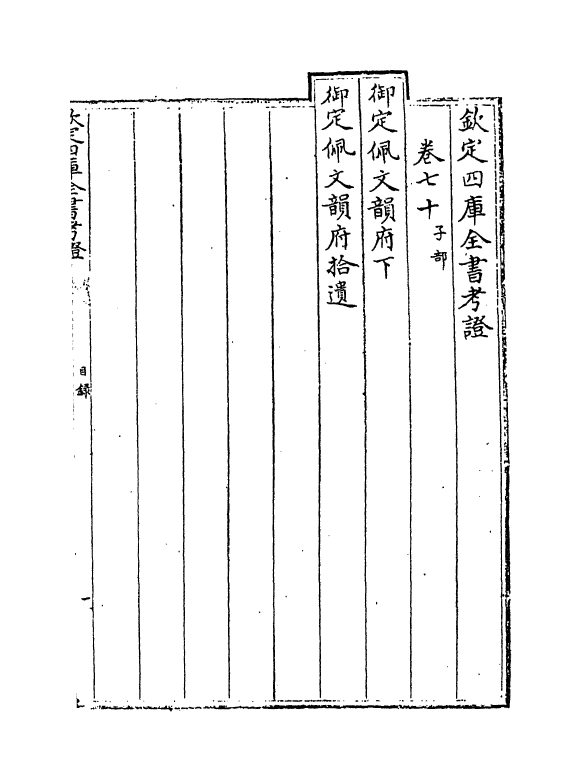 欽定四庫全書考證
卷七十子部
御定佩文韻府下
御定佩文韻府拾遺
欽定四庫全書考證
目録
一